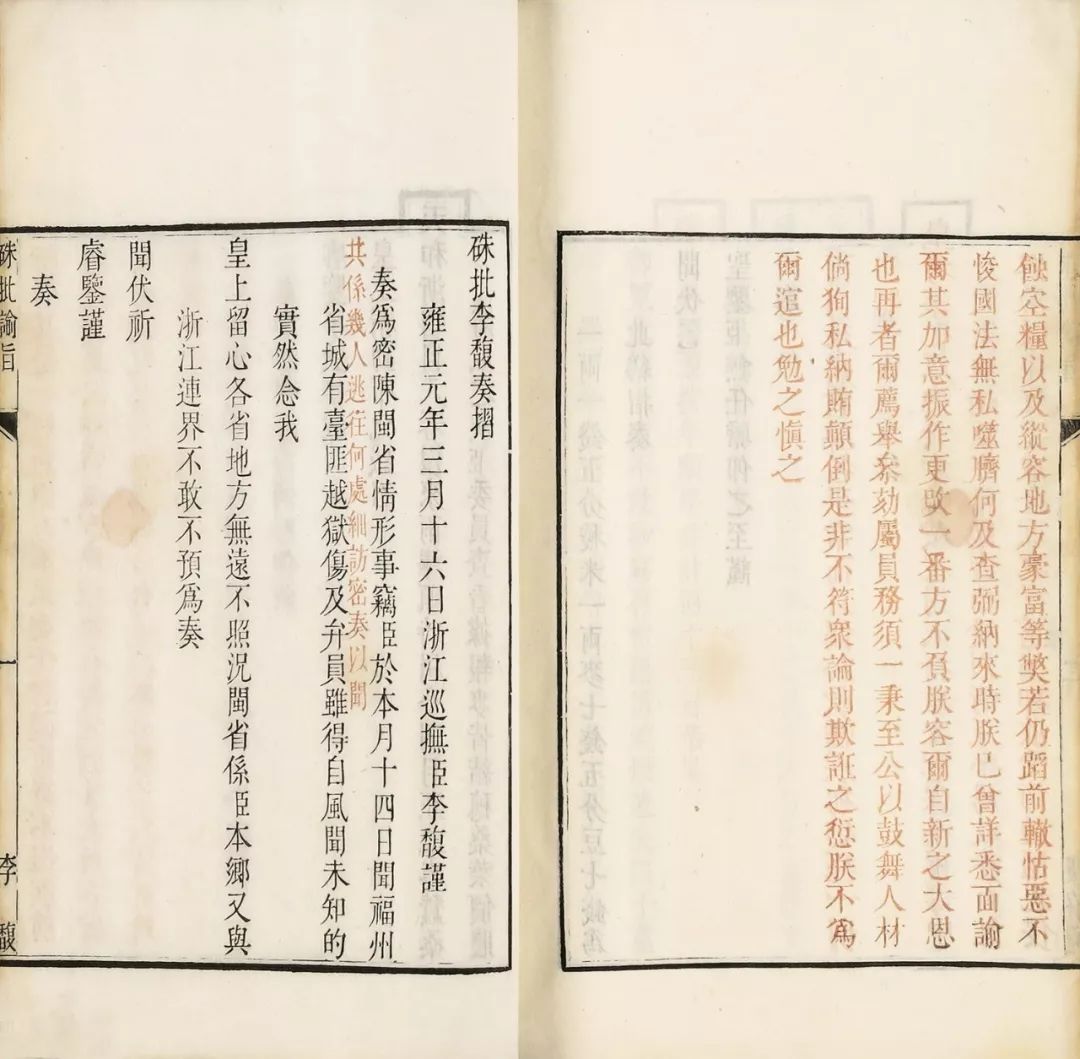 蝕空糧以及縱容地方豪富等獘若仍蹈前轍怙惡不
悛國法無私噬臍何及查弼納來時朕已曾詳悉面諭
爾其加意振作更改一番方不負朕容爾自新之大恩
也再者爾薦舉叅劾屬員務須一秉至公以鼓舞人材
倘狥私納賄顛倒是非不符衆論則欺誑之愆朕不爲
爾逭也勉之愼之
硃批李馥奏摺
雍正元年三月十六日浙江巡撫臣李馥謹
奏爲密陳閩省情形事竊臣於本月十四日聞福州
共係幾人逃往何處細訪密奏以聞
省城有臺匪越獄傷及弁員雖得自風聞未知的
實然念我
皇上留心各省地方無遠不照況閩省係臣本鄉又與
浙江連界不敢不預爲奏
聞伏祈
睿鑒謹
奏
硃批諭旨
一
李馥